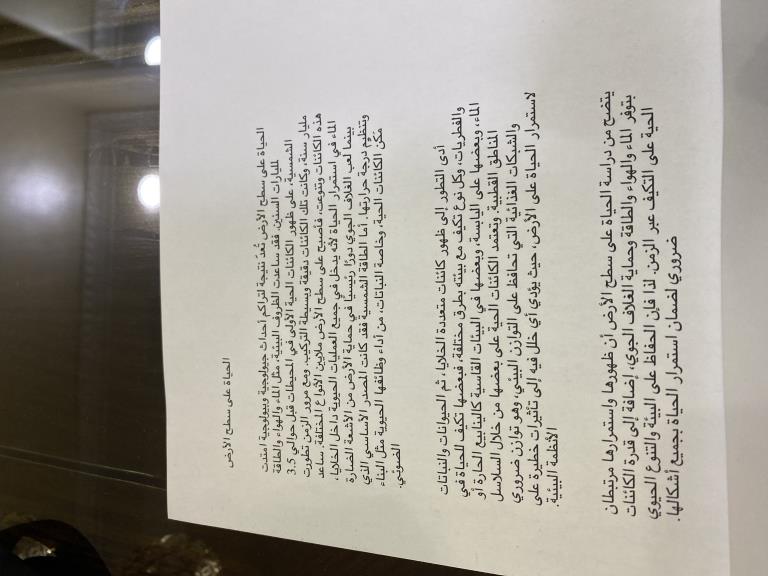 الحياة على سطح الأرض
الحياة على سطح الأرض تُعدّ نتيجة لتراكم أحداث جيولوجية وبيولوجية امتدت
لمليارات السنين. فقد ساعدت الظروف البيئية، مثل الماء والهواء والطاقة
الشمسية، على ظهور الكائنات الحية الأولى في المحيطات قبل حوالي 3.5
مليار سنة، وكانت تلك الكائنات دقيقة وبسيطة التركيب. ومع مرور الزمن تطورت
هذه الكائنات وتنوعت، فأصبح على سطح الأرض ملايين الأنواع المختلفة. ساعد
الماء في استمرار الحياة لأنه يدخل في جميع العمليات الحيوية داخل الخلايا،
بينما لعب الغلاف الجوي دورًا رئيسيًا في حماية الأرض من الأشعة الضارة
وتنظيم درجة حرارتها. أما الطاقة الشمسية فقد كانت المصدر الأساسي الذي
مكّن الكائنات الحية، وخاصة النباتات، من أداء وظائفها الحيوية مثل البناء
الضوئي.
أدى التطور إلى ظهور كائنات متعددة الخلايا، ثم الحيوانات والنباتات
والفطريات، وكل نوع تكيف مع بيئته بطرق مختلفة، فبعضها تكيف للحياة في
الماء، وبعضها على اليابسة، وبعضها في البيئات القاسية كالينابيع الحارة أو
المناطق القطبية. وتعتمد الكائنات الحية على بعضها من خلال السلاسل
والشبكات الغذائية التي تحافظ على التوازن البيئي، وهو توازن ضروري
لاستمرار الحياة على الأرض، حيث يؤدي أي خلل فيه إلى تأثيرات خطيرة على
الأنظمة البيئية.
يتضح من دراسة الحياة على سطح الأرض أن ظهورها واستمرارها مرتبطان
بتوفر الماء والهواء والطاقة وحماية الغلاف الجوي، إضافة إلى قدرة الكائنات
الحية على التكيف عبر الزمن. لذا فإن الحفاظ على البيئة والتنوع الحيوي
ضروري لضمان استمرار الحياة بجميع أشكالها.